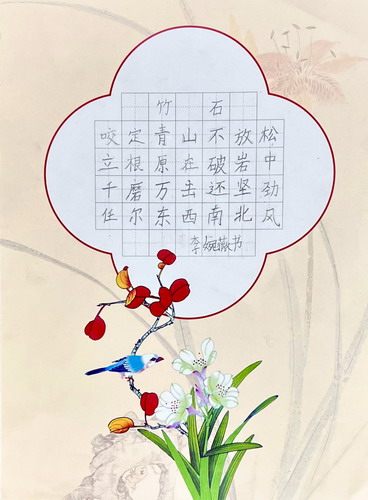 竹石
咬定青山不放松
立根原在破岩中
千磨万击还坚劲
任尔东西南北风
李婉书